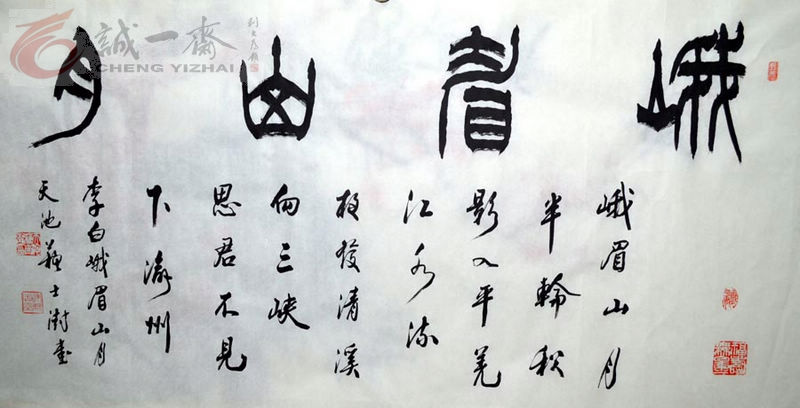 誠一齋
CHENG YIZHAI
峨眉山月
峨眉山月
半輪秋
影入平羌
江水流
夜發清溪
向三峽
思君不見
下渝州
李白峨眉山月
天池蘇士澍書